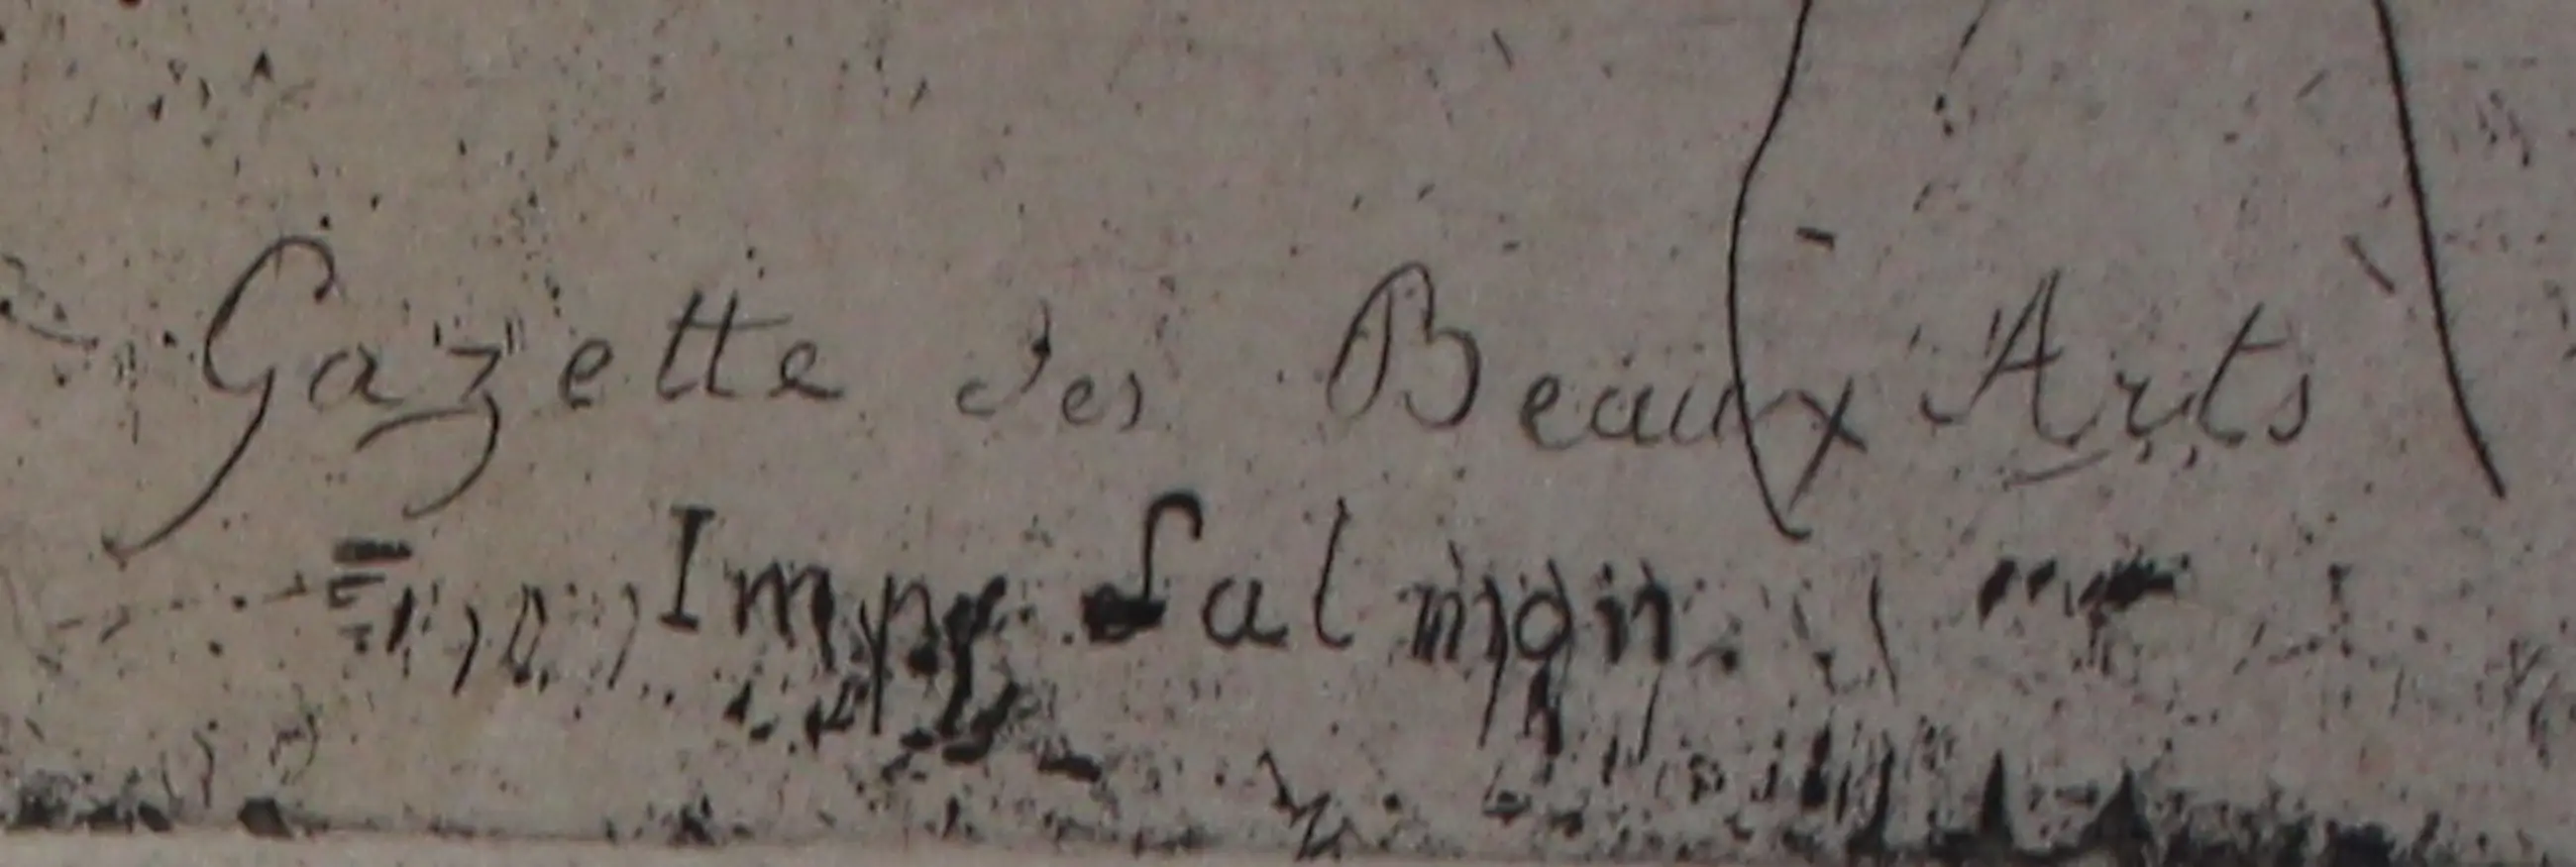 Gazette des Beaux Arts
Imp. Salmon.